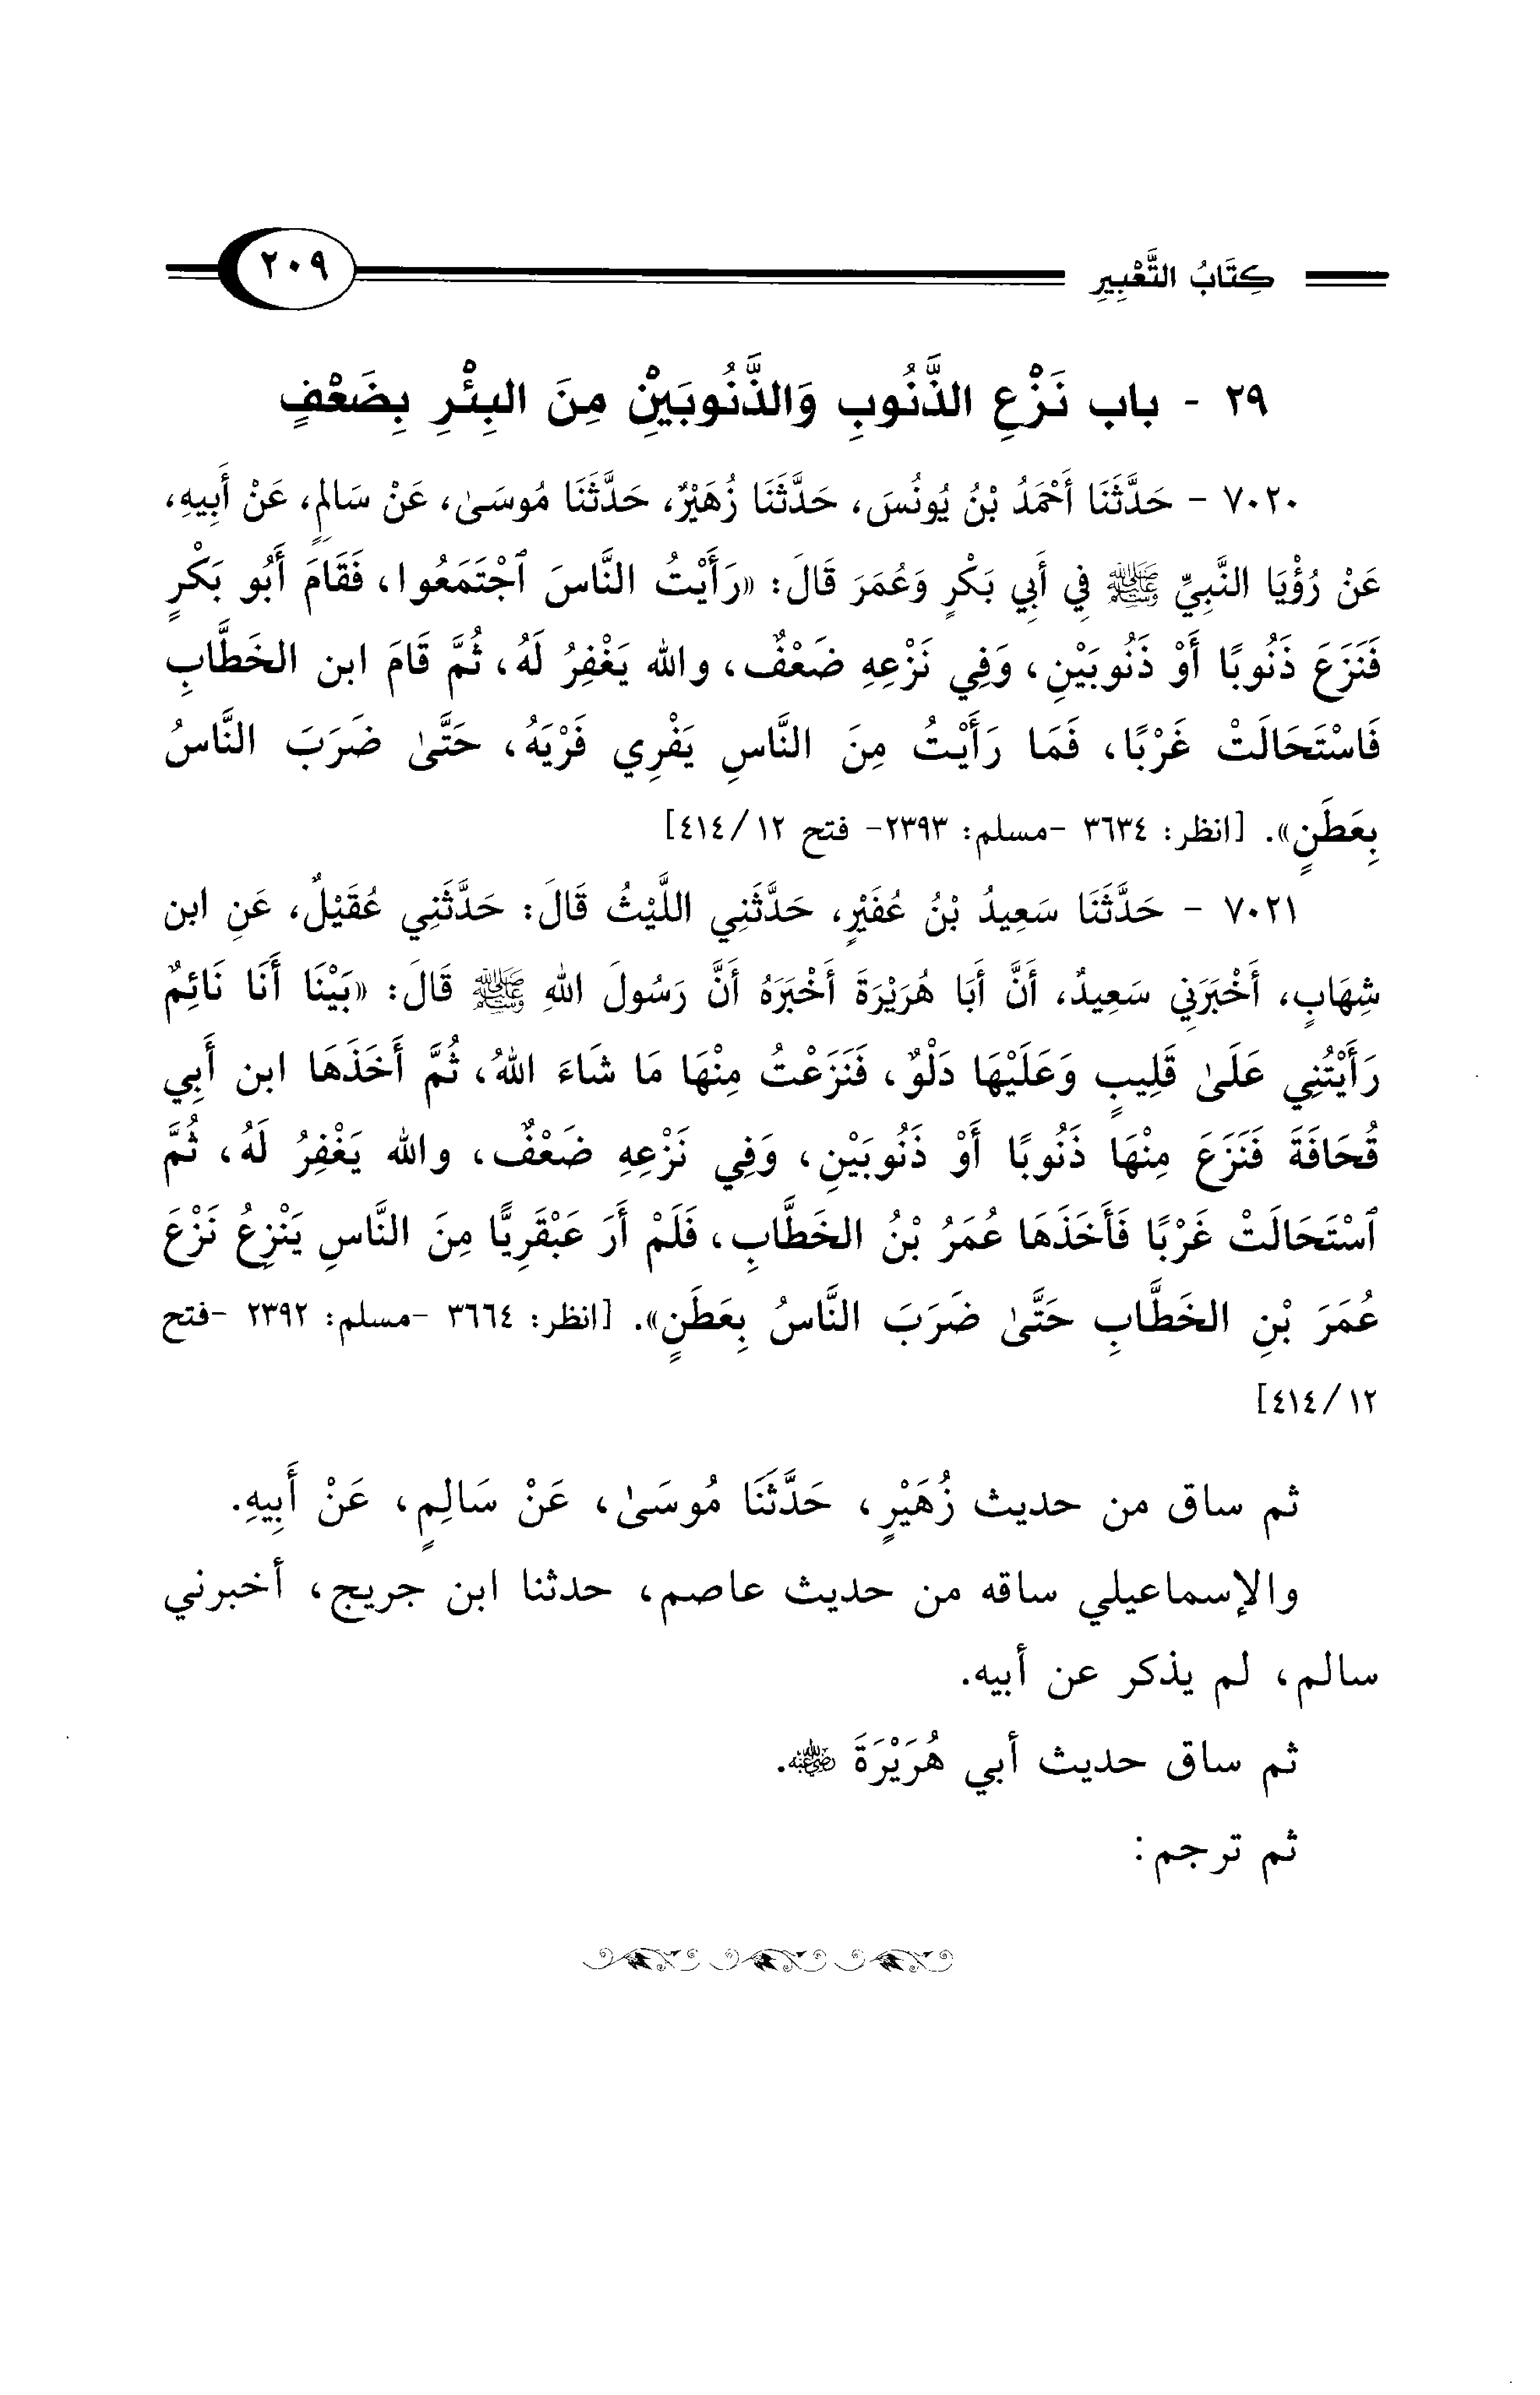 كِتَابُ التَّعْبِيرِ ٢٠٩
٢٩ - باب نَزْعِ الذَّنُوبِ وَالذَّنُوبَيْنِ مِنَ البِئْرِ بِضَعْفٍ
٧٠٢٠ - حَدَّثَنَا أَحْمَدُ بْنُ يُونُسَ، حَدَّثَنَا زُهَيْرٌ، حَدَّثَنَا مُوسَىٰ، عَنْ سَالِمٍ، عَنْ أَبِيهِ،
عَنْ رُؤْيَا النَّبِيِّ ﷺ فِي أَبِي بَكْرٍ وَعُمَرَ قَالَ: «رَأَيْتُ النَّاسَ ٱجْتَمَعُوا، فَقَامَ أَبُو بَكْرٍ
فَنَزَعَ ذَنُوبًا أَوْ ذَنُوبَيْنِ، وَفِي نَزْعِهِ ضَعْفٌ، والله يَغْفِرُ لَهُ، ثُمَّ قَامَ ابن الخَطَّابِ
فَاسْتَحَالَتْ غَرْبًا، فَمَا رَأَيْتُ مِنَ النَّاسِ يَفْرِي فَرْيَهُ، حَتَّىٰ ضَرَبَ النَّاسُ
بِعَطَنٍ». [انظر: ٣٦٣٤ -مسلم: ٢٣٩٣- فتح ١٢/ ٤١٤]
٧٠٢١ - حَدَّثَنَا سَعِيدُ بْنُ عُفَيْرٍ، حَدَّثَنِي اللَّيْثُ قَالَ: حَدَّثَنِي عُقَيْلٌ، عَنِ ابن
شِهَابٍ، أَخْبَرَنِي سَعِيدٌ، أَنَّ أَبَا هُرَيْرَةَ أَخْبَرَهُ أَنَّ رَسُولَ اللهِ ﷺ قَالَ: «بَيْنَا أَنَا نَائِمٌ
رَأَيْتُنِي عَلَىٰ قَلِيبٍ وَعَلَيْهَا دَلْوٌ، فَنَزَعْتُ مِنْهَا مَا شَاءَ اللهُ، ثُمَّ أَخَذَهَا ابن أَبِي
قُحَافَةَ فَنَزَعَ مِنْهَا ذَنُوبًا أَوْ ذَنُوبَيْنِ، وَفِي نَزْعِهِ ضَعْفٌ، والله يَغْفِرُ لَهُ، ثُمَّ
ٱسْتَحَالَتْ غَرْبًا فَأَخَذَهَا عُمَرُ بْنُ الخَطَّابِ، فَلَمْ أَرَ عَبْقَرِيًّا مِنَ النَّاسِ يَنْزِعُ نَزْعَ
عُمَرَ بْنِ الخَطَّابِ حَتَّىٰ ضَرَبَ النَّاسُ بِعَطَنٍ». [انظر: ٣٦٦٤ -مسلم: ٢٣٩٢ -فتح
١٢/ ٤١٤]
ثم ساق من حديث زُهَيْرٍ، حَدَّثَنَا مُوسَىٰ، عَنْ سَالِمٍ، عَنْ أَبِيهِ.
والإسماعيلي ساقه من حديث عاصم، حدثنا ابن جريج، أخبرني
سالم، لم يذكر عن أبيه.
ثم ساق حديث أبي هُرَيْرَةَ رضي الله عنه.
ثم ترجم: